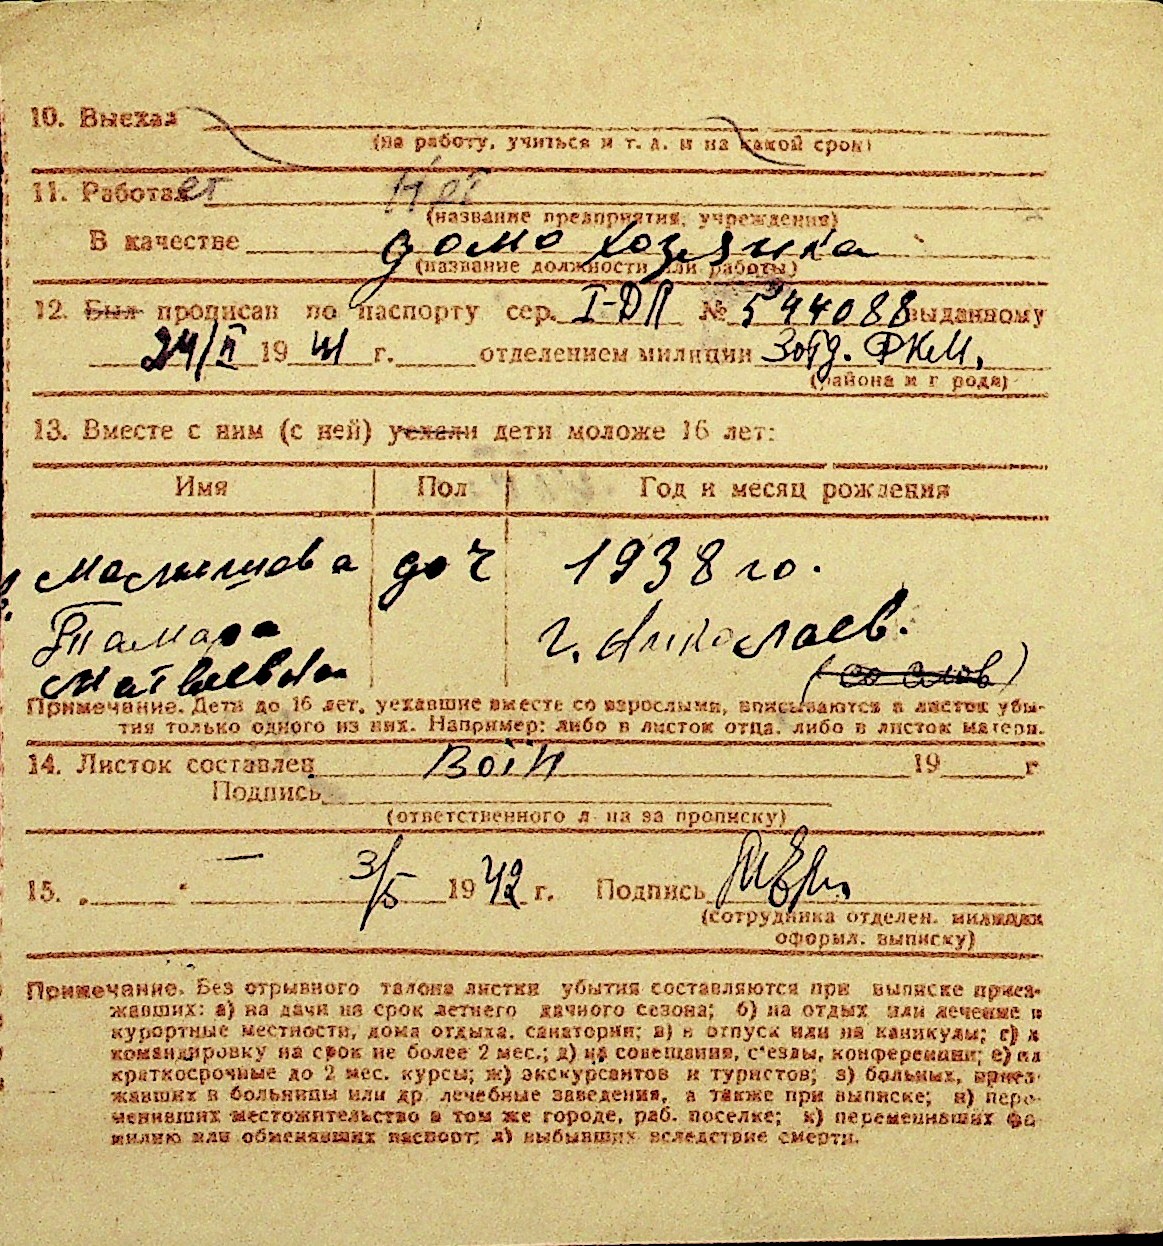 10. Выехал
(на работу, учиться и т. д. и на какой срок)
11. Работает Нет
(название предприятия, учреждения)
В качестве домохозяика
(название должности или работы)
12. Был прописан по паспорту сер. I-ДП № 544088 выданному
24/II 1941 г. отделением милиции 3 отд. РКМ,
(района и города)
13. Вместе с ним (с ней) уехали дети моложе 16 лет:
Имя Пол Год и месяц рождения
Малышова доч 1938 го.
Тамара г. Николаев.
Матвеевна (со слов)
Примечание. Дети до 16 лет, уехавшие вместе со взрослыми, вписываются в листок убы-
тия только одного из них. Например: либо в листок отца, либо в листок матери.
14. Листок составлен 19 г
Подпись
(ответственного л на за прописку)
15. 3/5 1942 г. Подпись
(сотрудника отделен. милиции
оформл. выписку)
Примечание. Без отрывного талона листки убытия составляются при выписке приез-
жавших: а) на дачи на срок летнего дачного сезона; б) на отдых или лечение в
курортные местности, дома отдыха, санатории; в) в отпуск или на каникулы; г) в
командировку на срок не более 2 мес.; д) на совещания, с'езды, конференции; е) на
краткосрочные до 2 мес. курсы; ж) экскурсантов и туристов; з) больных, приез-
жавших в больницы или др лечебные заведения, а также при выписке; и) пере-
менивших местожительство в том же городе, раб. поселке; к) переменивших фа-
милию или обменявших паспорт; л) выбывших вследствие смерти.